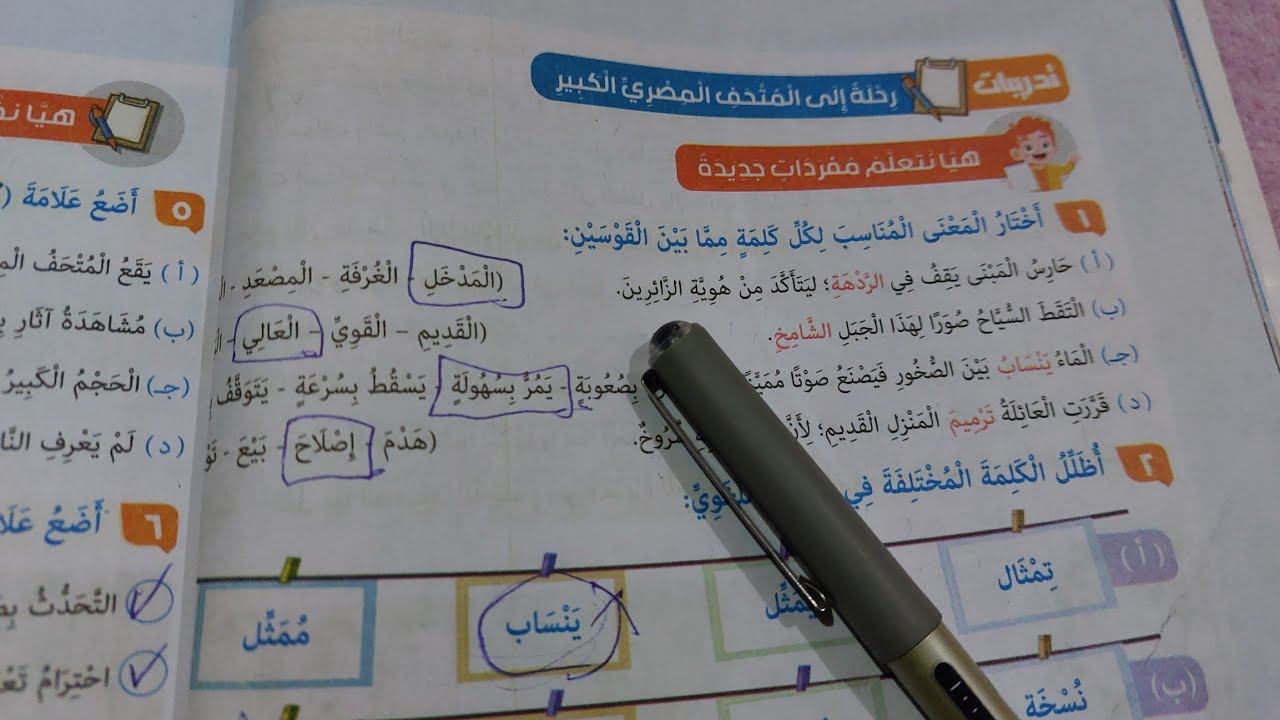 تدريبات
رِحْلَةٌ إِلَى الْمُتْحَفِ الْمِصْرِيِّ الْكَبِيرِ
هَيَّا نَتَعَلَّمْ مُفْرَدَاتٍ جَدِيدَةً
١ أَخْتَارُ الْمَعْنَى الْمُنَاسِبَ لِكُلِّ كَلِمَةٍ مِمَّا بَيْنَ الْقَوْسَيْنِ:
(أ) حَارِسُ الْمَبْنَى يَقِفُ فِي الرَّدْهَةِ؛ لِيَتَأَكَّدَ مِنْ هُوِيَّةِ الزَّائِرِينَ. (الْمَدْخَلِ - الْغُرْفَةِ - الْمِصْعَدِ -
(ب) الْتَقَطَ السُّيَّاحُ صُوَرًا لِهَذَا الْجَبَلِ الشَّامِخِ. (الْقَدِيمِ - الْقَوِيِّ - الْعَالِي -
(جـ) الْمَاءُ يَنْسَابُ بَيْنَ الصُّخُورِ فَيَصْنَعُ صَوْتًا بِصُعُوبَةٍ - يَمُرُّ بِسُهُولَةٍ - يَسْقُطُ بِسُرْعَةٍ - يَتَوَقَّفُ
(د) قَرَّرَتِ الْعَائِلَةُ تَرْمِيمَ الْمَنْزِلِ الْقَدِيمِ؛ (هَدْمَ - إِصْلَاحَ - بَيْعَ -
٢ أُظَلِّلُ الْكَلِمَةَ الْمُخْتَلِفَةَ فِي
(أ) تِمْثَال يَنْسَاب مُمَثِّل
(ب) نُسْخَة
هَيَّا
٥ أَضَعُ عَلَامَةَ
(أ) يَقَعُ الْمُتْحَفُ
(ب) مُشَاهَدَةُ آثَارِ
(جـ) الْحَجْمُ الْكَبِيرُ
(د) لَمْ يَعْرِفِ
٦ أَضَعُ
التَّحَدُّثُ
احْتِرَامُ